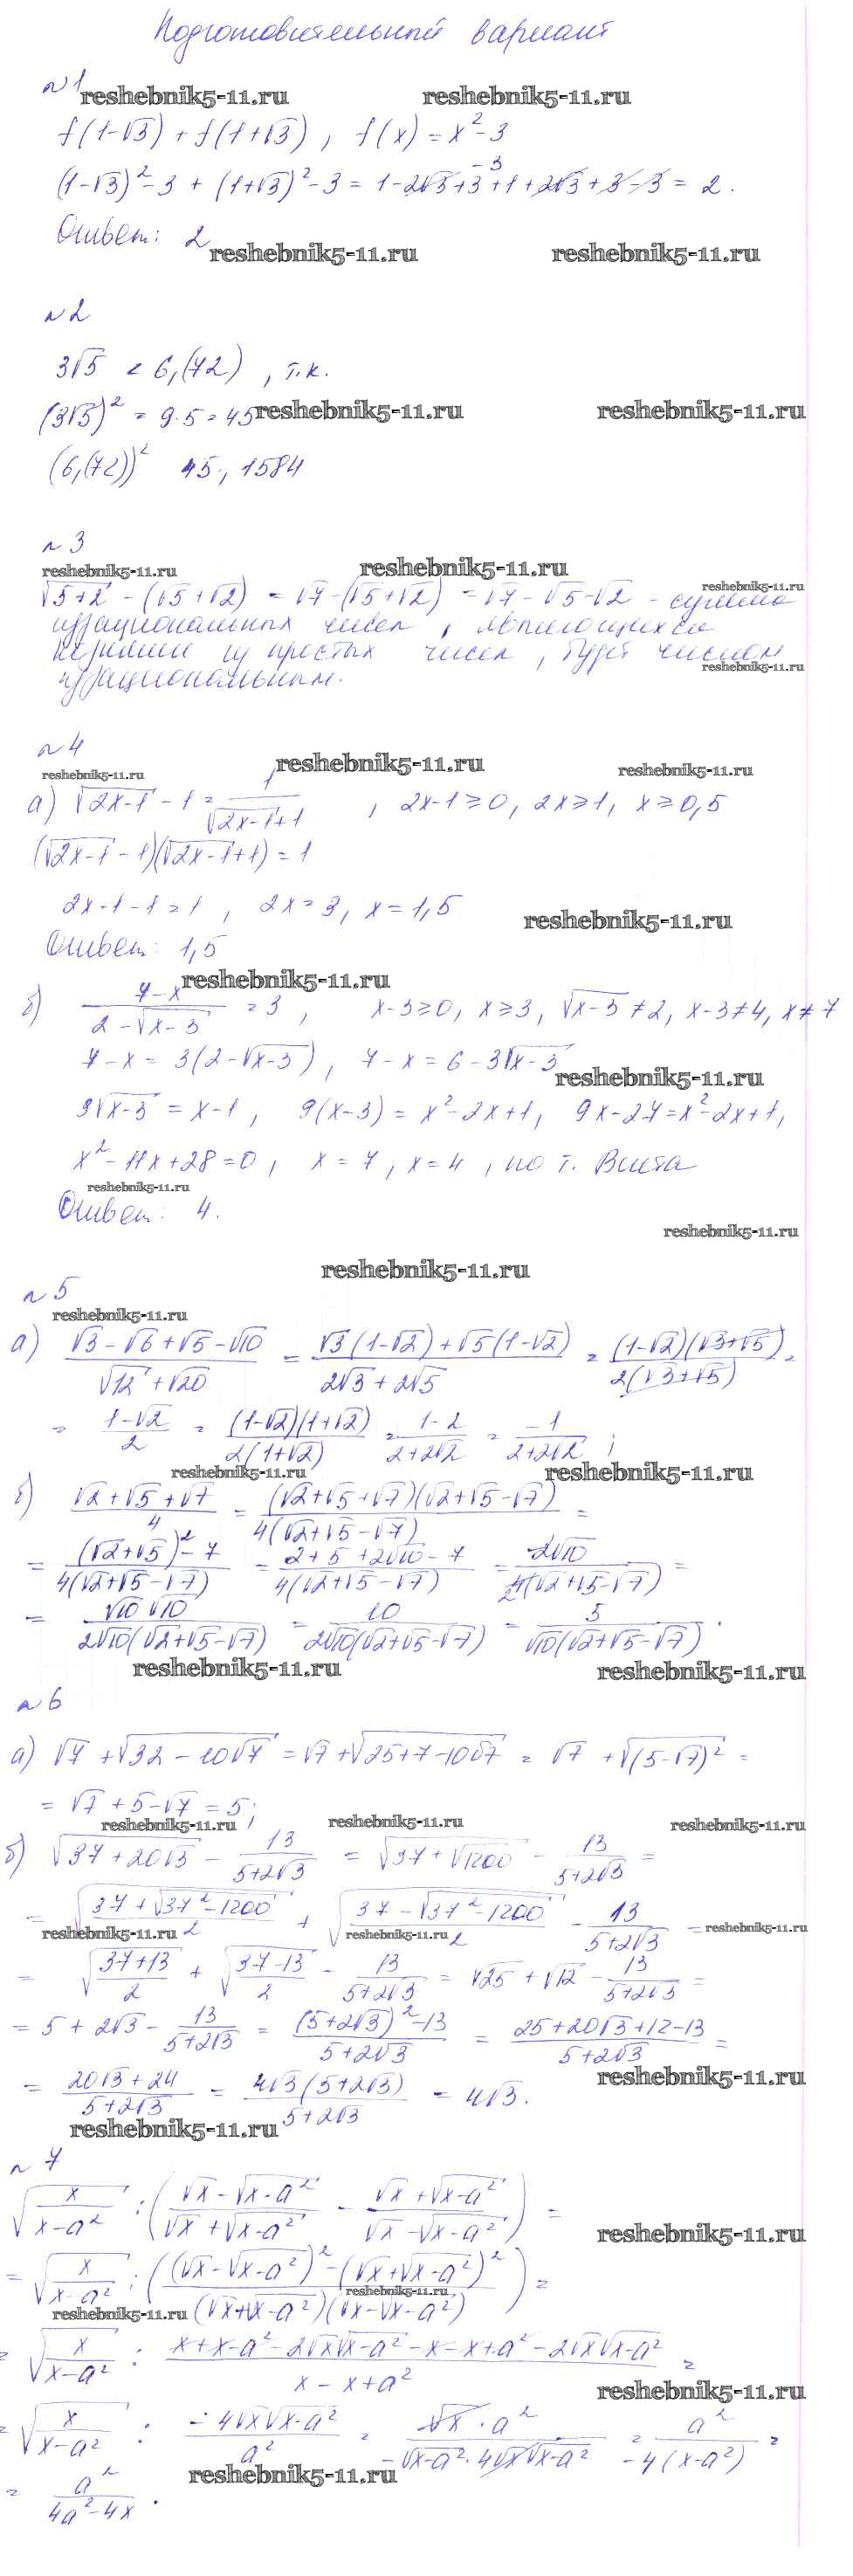 Подготовительный вариант
№1
reshebnik5-11.ru reshebnik5-11.ru
f(1-√3) + f(1+√3), f(x) = x²-3
(1-√3)²-3 + (1+√3)²-3 = 1-2√3+3-3+1+2√3+3-3 = 2.
Ответ: 2
reshebnik5-11.ru reshebnik5-11.ru
№2
3√5 < 6,(72), т.к.
(3√5)² = 9·5=45
reshebnik5-11.ru reshebnik5-11.ru
(6,(72))² 45,1584
№3
reshebnik5-11.ru reshebnik5-11.ru reshebnik5-11.ru
√5+2 - (√5+√2) = √7-(√5+√2) = √7-√5-√2 - сумма
иррациональных чисел, являющихся
корнями из простых чисел, будет числом
reshebnik5-11.ru
иррациональным.
№4
reshebnik5-11.ru reshebnik5-11.ru reshebnik5-11.ru
а) √(2x-1) - 1 = 1/(√(2x-1)+1), 2x-1≥0, 2x≥1, x≥0,5
(√(2x-1)-1)(√(2x-1)+1) = 1
2x-1-1=1, 2x=3, x=1,5
reshebnik5-11.ru
Ответ: 1,5
reshebnik5-11.ru
б) (7-x)/(2-√(x-3)) = 3, x-3≥0, x≥3, √(x-3)≠2, x-3≠4, x≠7
7-x = 3(2-√(x-3)), 7-x = 6-3√(x-3)
reshebnik5-11.ru
3√(x-3) = x-1, 9(x-3) = x²-2x+1, 9x-27=x²-2x+1,
x²-11x+28=0, x=7, x=4, по т. Виета
reshebnik5-11.ru
Ответ: 4.
reshebnik5-11.ru
reshebnik5-11.ru
№5
reshebnik5-11.ru
а) (√3-√6+√5-√10)/(√12+√20) = (√3(1-√2)+√5(1-√2))/(2√3+2√5) = ((1-√2)(√3+√5))/(2(√3+√5)) =
= (1-√2)/2 = ((1-√2)(1+√2))/(2(1+√2)) = (1-2)/(2+2√2) = -1/(2+2√2);
reshebnik5-11.ru reshebnik5-11.ru
б) (√2+√5+√7)/4 = ((√2+√5+√7)(√2+√5-√7))/(4(√2+√5-√7)) =
= ((√2+√5)²-7)/(4(√2+√5-√7)) = (2+5+2√10-7)/(4(√2+√5-√7)) = 2√10/(4(√2+√5-√7)) =
= √10√10/(2√10(√2+√5-√7)) = 10/(2√10(√2+√5-√7)) = 5/(√10(√2+√5-√7)).
reshebnik5-11.ru reshebnik5-11.ru
№6
а) √7+√(32-10√7) = √7+√(25+7-10√7) = √7+√((5-√7)²) =
= √7+5-√7 = 5;
reshebnik5-11.ru reshebnik5-11.ru reshebnik5-11.ru
б) √(37+20√3) - 13/(5+2√3) = √(37+√1200) - 13/(5+2√3) =
= √((37+√(37²-1200))/2) + √((37-√(37²-1200))/2) - 13/(5+2√3) =
reshebnik5-11.ru reshebnik5-11.ru reshebnik5-11.ru
= √((37+13)/2) + √((37-13)/2) - 13/(5+2√3) = √25+√12 - 13/(5+2√3) =
= 5+2√3 - 13/(5+2√3) = ((5+2√3)²-13)/(5+2√3) = (25+20√3+12-13)/(5+2√3) =
= (20√3+24)/(5+2√3) = (4√3(5+2√3))/(5+2√3) = 4√3.
reshebnik5-11.ru
reshebnik5-11.ru
№7
√(x/(x-a²)) : ((√x-√(x-a²))/(√x+√(x-a²)) - (√x+√(x-a²))/(√x-√(x-a²))) =
reshebnik5-11.ru
= √(x/(x-a²)) : (((√x-√(x-a²))²-(√x+√(x-a²))²)/((√x+√(x-a²))(√x-√(x-a²)))) =
reshebnik5-11.ru reshebnik5-11.ru
= √(x/(x-a²)) : (x+x-a²-2√x√(x-a²)-x-x+a²-2√x√(x-a²))/(x-x+a²) =
reshebnik5-11.ru
= √(x/(x-a²)) : (-4√x√(x-a²))/a² = (√x·a²)/(-√(x-a²)·4√x√(x-a²)) = a²/(-4(x-a²)) =
reshebnik5-11.ru
= a²/(4a²-4x).